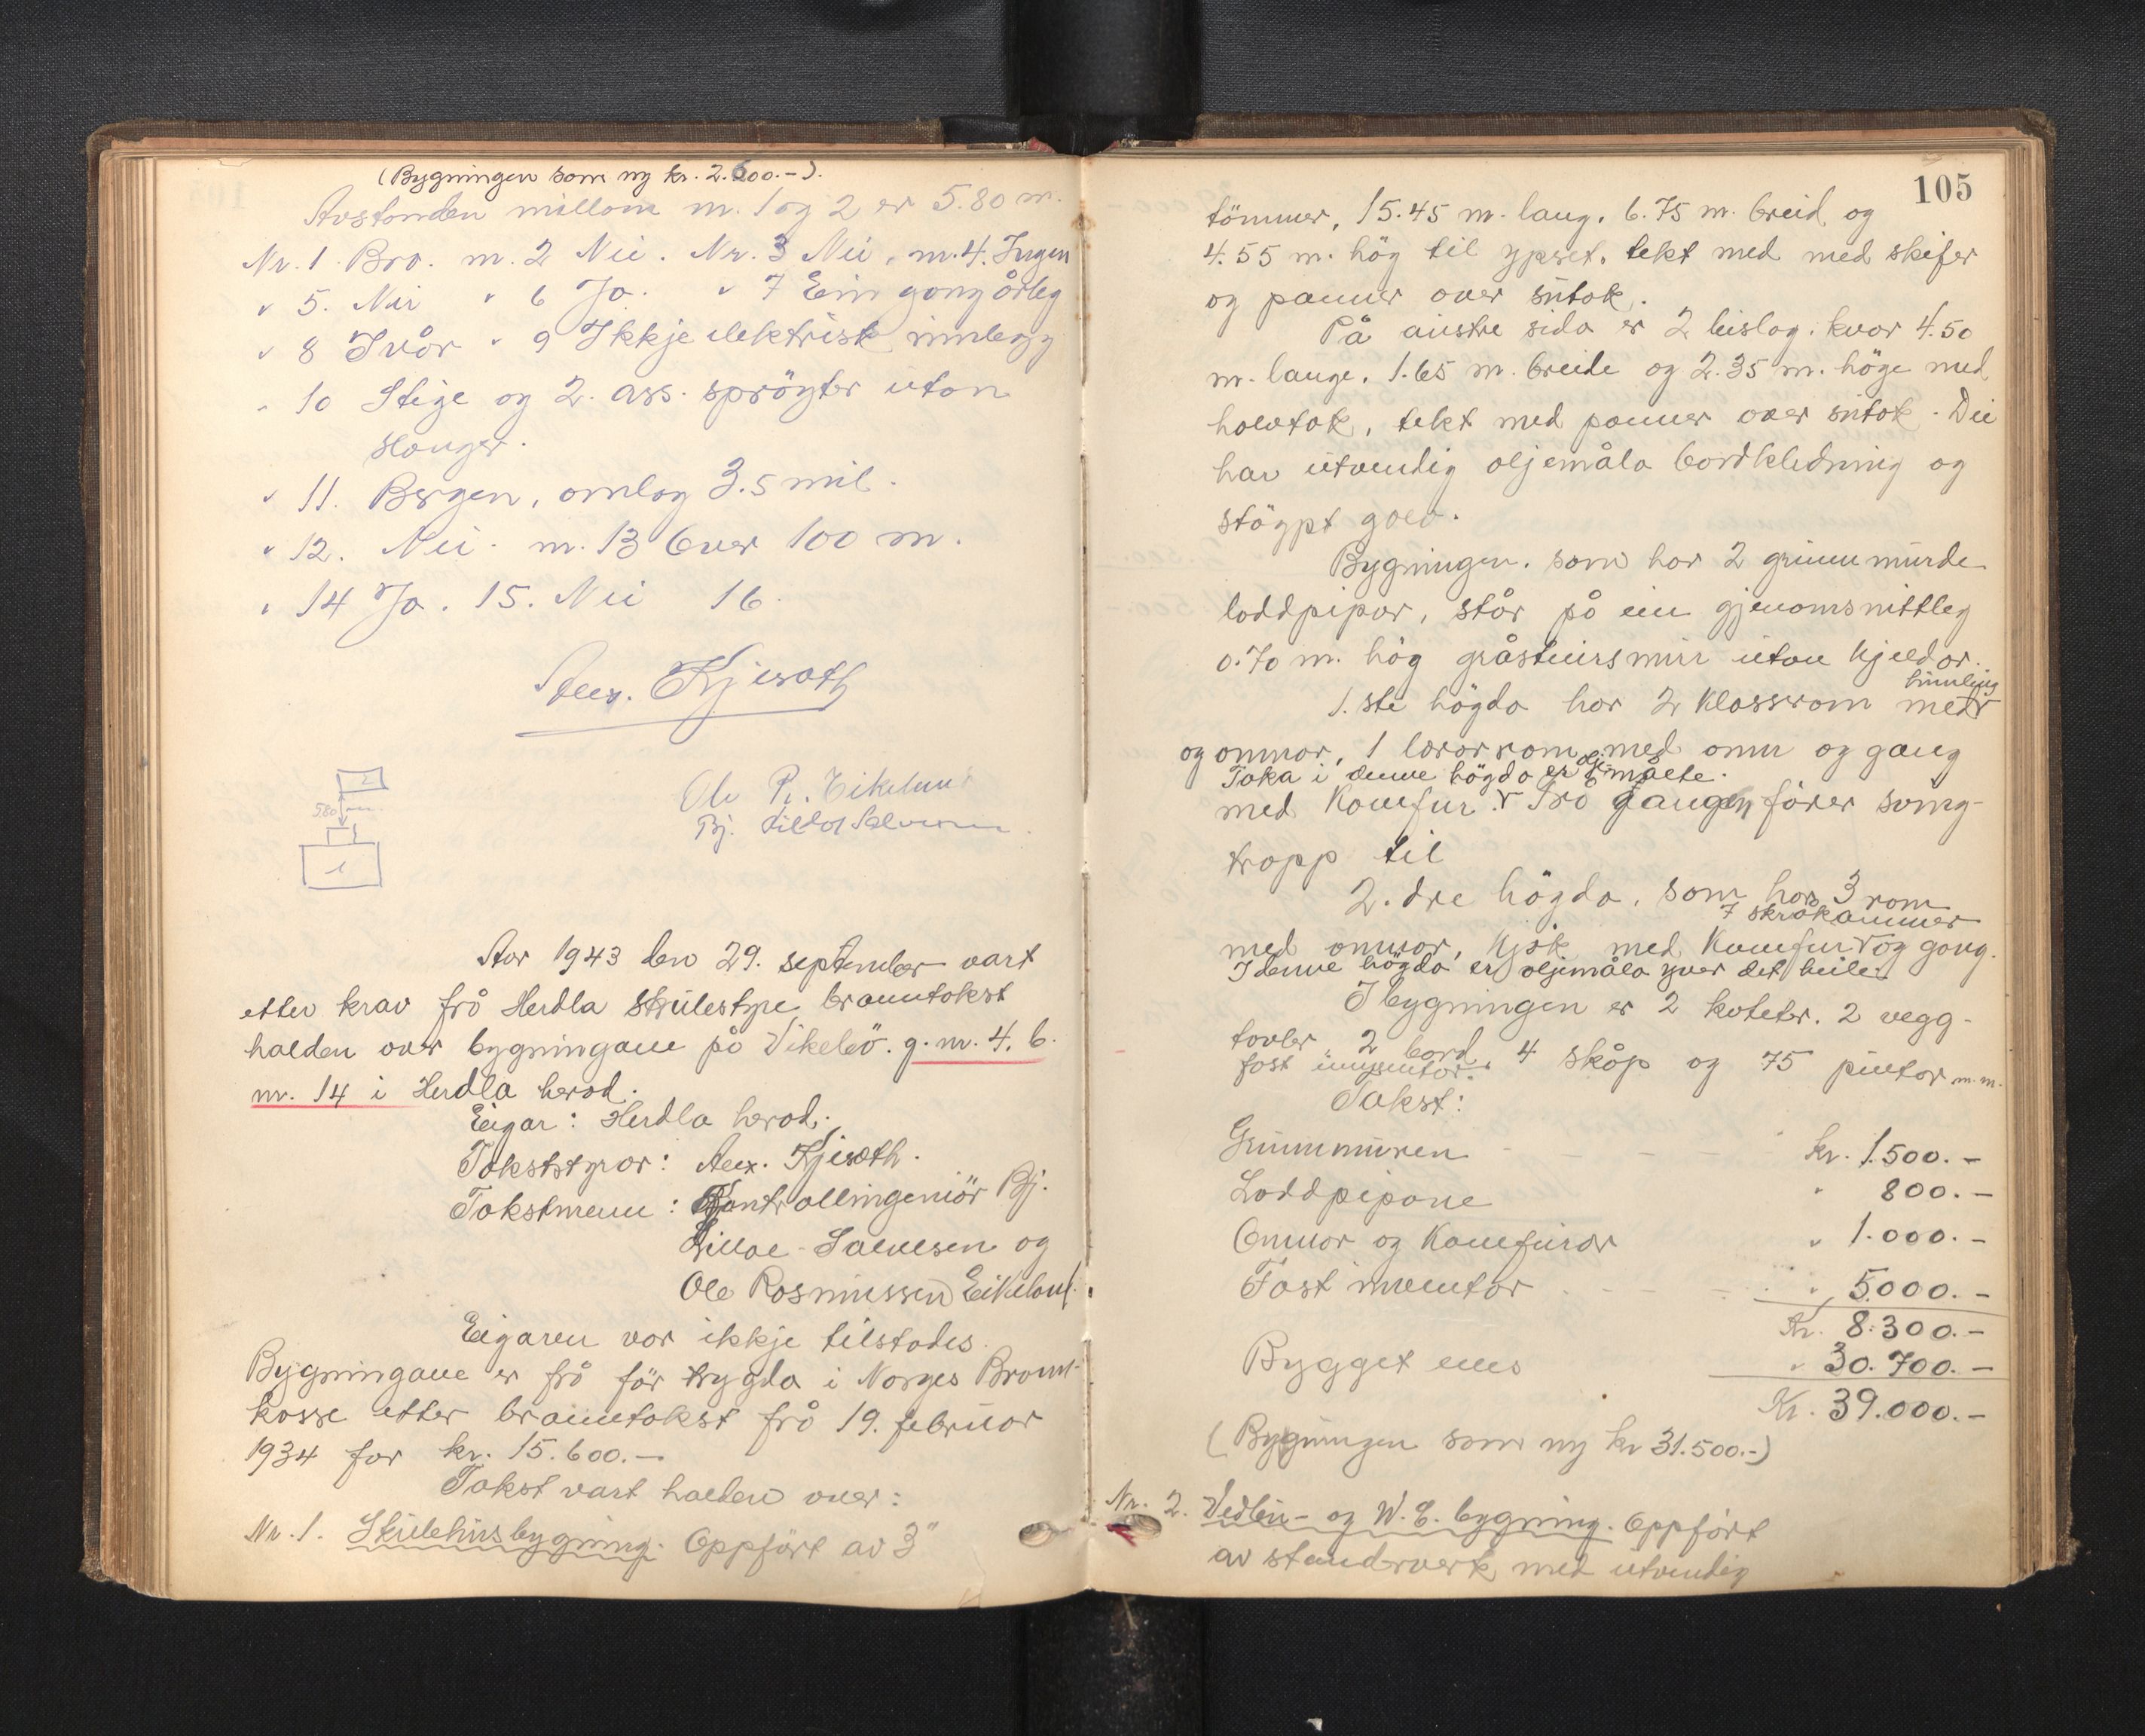 (Bygningen som ny kr. 2.600.-).
Avstanden millom nr. 1 og 2 er 5.80 m.
Nr. 1 Bra. nr. 2 Nei. Nr. 3 Nei, nr. 4. Ingen
" 5. Nei " 6 Ja. " 7 Ein gong årleg
" 8 Tvår " 9 Ikkje elektrisk innlegg
" 10 Stige og 2 ass. sprøyter utan
slanger.
" 11. Bergen, omlag 3.5 mil.
" 12. Nei. nr. 13 Over 100 m.
" 14 Ja. 15. Nei 16.
Alex. Kjeseth
2
580 m.
1
Ole R. Eikeland
Bj. Lilløe Salvesen
Aar 1943 den 29. september vart
etter krav frå Herdla skulestyre branntakst
halden over bygningane på Vikebö. g. nr. 4. b.
nr. 14 i Herdla herad.
Eigar: Herdla herad.
Takststyrar: Alex. Kjeseth.
Takstmenn: Kontrollingeniör Bj.
Lilløe-Salvesen og
Ole Rasmussen Eikeland.
Eigaren var ikkje tilstades.
Bygningane er frå för trygda i Norges Brann-
kasse etter branntakst frå 19. februar
1934 for kr. 15.600.-
Takst vart halden over:
Nr. 1. Skulehusbygning. Oppfört av 3"
105
tömmer, 15.45 m. lang, 6.75 m. breid og
4.55 m. hög til ypset, tekt med med skifer
og panner over sutak.
På austre sida er 2 bislag, kvar 4.50
m. lange, 1.65 m. breide og 2.35 m. höge med
halvtak, tekt med panner over sutak. Dei
har utvendig oljemåla bordkledning og
stöypt golv.
Bygningen, som har 2 grunnmurde
loddpipor, står på ein gjenomsnittleg
0.70 m. hög gråsteinsmur utan kjeldar.
himling
1. ste högda har 2 klassrom med
og omnar, 1 lærarrom med omn og gang
Taka i denne högda er oljemålte.
med komfur. Frå gangen förer sving-
trapp til
2. dre högda, som har 3 rom
7 skråkammer
med omnar, kjök med komfur og gang.
I denne högda er oljemåla yver det heile
I bygningen er 2 kateter, 2 vegg-
tavler, 2 bord, 4 skåp og 75 pultar m.m.
fast innventar.
Takst:
Grunnmuren kr. 1.500.-
Loddpipone " 800.-
Omnar og Komfurar " 1.000.-
Fast inventar " 5.000.-
Kr. 8.300.-
Bygget elles " 30.700.-
Kr. 39.000.-
(Bygningen som ny kr 31.500.-)
Nr. 2. Vedbu- og W.C. bygning. Oppfört
av standerverk med utvendig